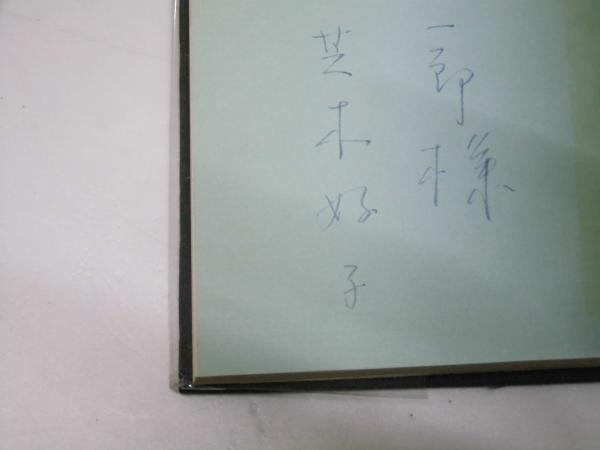 一郎様
芝木好子